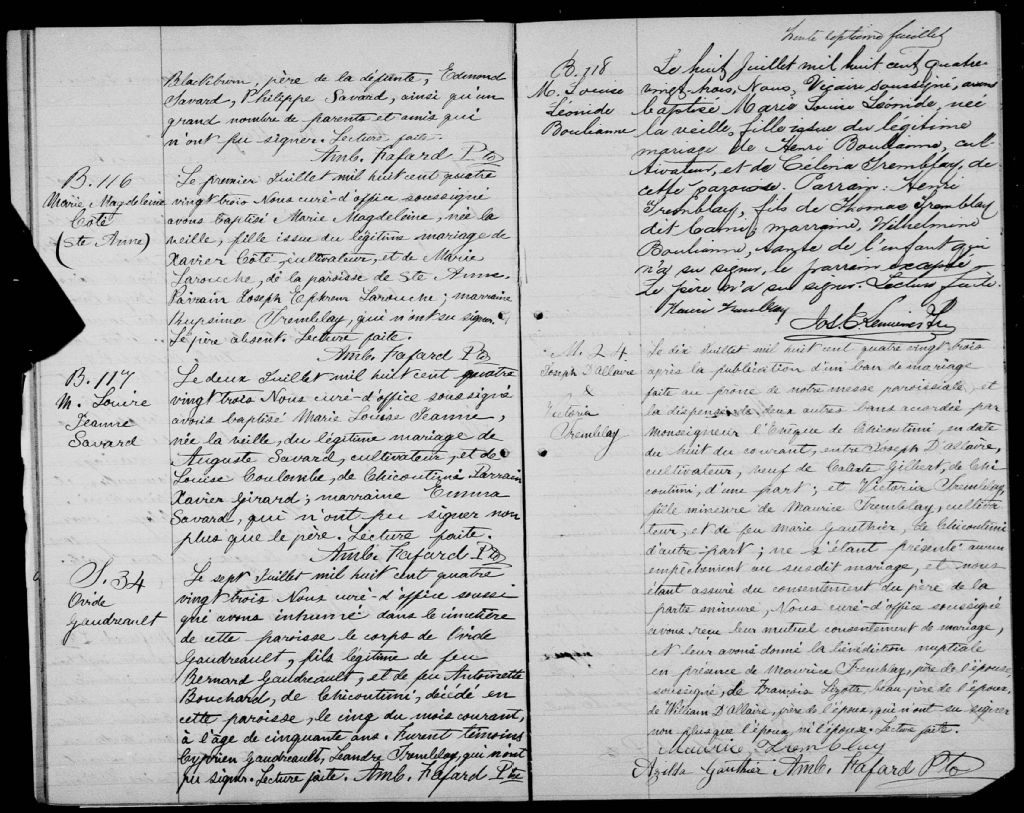 Blackburn, père de la défunte, Edmond
Savard, Philippe Savard, ainsi qu'un
grand nombre de parents et amis qui
n'ont pu signer. Lecture faite.
Amb. Fafard Ptre
B. 116
Marie, Magdeleine
Coté
(Ste Anne)
Le premier Juillet mil huit cent quatre
vingt trois Nous curé-d'office soussigné
avons baptisé Marie Magdeleine, née la
veille, fille issue du légitime mariage de
Xavier Coté, cultivateur, et de Marie
Larouche, de la paroisse de Ste Anne.
Parrain Joseph Ephrem Larouche; marraine
Rupsima Tremblay, qui n'ont su signer.
Le père absent. Lecture faite.
Amb. Fafard Ptre
B. 117
M. Louise
Jeanne
Savard
Le deux Juillet mil huit cent quatre
vingt trois Nous curé-d'office soussigné
avons baptisé Marie Louise Jeanne,
née la veille, du légitime mariage de
Auguste Savard, cultivateur, et de
Louise Coulombe, de Chicoutimi Parrain
Xavier Girard; marraine Emma
Savard, qui n'ont pu signer non
plus que le père. Lecture faite.
Amb. Fafard Ptre
S. 34
Ovide
Gaudreault
Le sept Juillet mil huit cent quatre
vingt trois Nous curé-d'office soussi
gné avons inhumé dans le cimetière
de cette paroisse le corps de Ovide
Gaudreault, fils légitime de feu
Bernard Gaudreault, et de feu Antoinette
Bouchard, de Chicoutimi, décédé en
cette paroisse, le cinq du mois courant,
à l'âge de cinquante ans. Furent témoins
Cyprien Gaudreault, Leandre Tremblay, qui n'ont
pu signer. Lecture faite. Amb. Fafard Ptre
trente septième feuillet
B. 118
M. Louise
Léonide
Boulianne
Le huit Juillet mil huit cent quatre-
vingt-trois, Nous, Vicaire soussigné, avons
baptisé Marie Louise Léonide, née
la veille, fille issue du légitime
mariage de Henri Boulianne, cul
tivateur, et de Célina Tremblay, de
cette paroisse. Parrain: Henri
Tremblay, fils de Thomas Tremblay
dit Camil; marraine, Wilhelmine
Boulianne, tante de l'enfant qui
n'a su signer, le parrain excepté.
Le père n'a su signer. Lecture faite.
Henri Tremblay
M. 24
Joseph D'Allaire
&
Victoria
Tremblay
Le dix Juillet mil huit cent quatre vingt trois
après la publication d'un ban de mariage
faite au prône de notre messe paroissiale, et
la dispense de deux autres bans accordée par
Monseigneur l'Evêque de Chicoutimi, en date
du huit du courant, entre Joseph D'Allaire,
cultivateur, veuf de Calixte Gilbert, de Chi
coutimi, d'une part; et Victoria Tremblay,
fille mineure de Maurice Tremblay, cultiva
teur, et de feu Marie Gauthier, de Chicoutimi
d'autre part; ne s'étant présenté aucun
empêchement au susdit mariage, et nous
étant assuré du consentement du père de la
partie mineure, Nous curé-d'office soussigné
avons reçu leur mutuel consentement de mariage,
et leur avons donné la bénédiction nuptiale
en présence de Maurice Tremblay, père de l'épouse,
soussigné, de François Lizotte, beau père de l'époux,
de William D'Allaire, frère de l'époux, qui n'ont su signer
non plus que l'époux, ni l'épouse. Lecture faite.
Maurice Tremblay
Azilda Gauthier Amb. Fafard Ptre